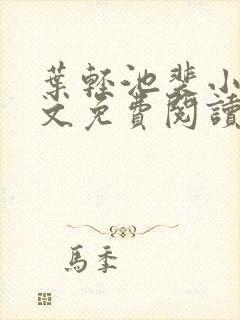 葉輕池裴小
文免費閱讀
馬季